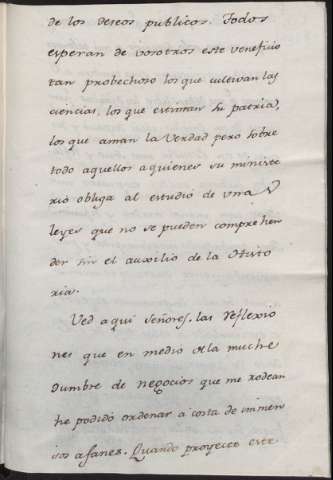 de los deseos publicos. Todos
esperan de vosotros este veneficio
tan probechoso los que cultivan las
ciencias, los que estiman su patria,
los que aman la Verdad pero sobre
todo aquellos a quienes su ministe
rio obliga al estudio de unas
leyes que no se pueden comprehen
der sin el auxilio de la Histo
ria.
Ved aqui Señores, las reflexio
nes que en medio de la muche
dumbre de negocios que me rodean
he podido ordenar a costa de inmen
sos afanes. Quando proyecté este